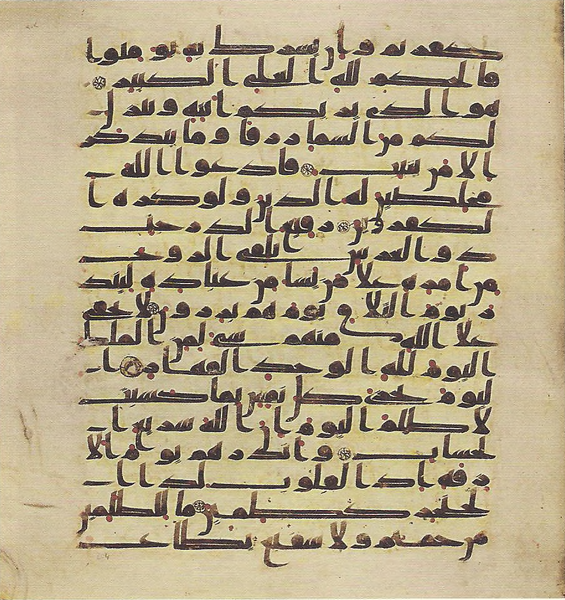 كفرتم وان يشرك به تومنوا
فالحكم لله العلي الكبير
هو الذي يريكم ايته وينزل
لكم من السما رزقا وما يتذكر
الا من ينيب فادعوا الله
مخلصين له الدين ولو كره ا
لكفرون رفيع الدرجت
ذو العرش يلقي الروح
من امره علا من يشا من عباده لينذ
ر يوم التلاق يوم هم برزون لا يخفى
علا الله منهم شي لمن الملك
اليوم لله الوحد القهار ا
ليوم تجزى كل نفس بما كسبت
لا ظلم اليوم ان الله سريع ا
لحساب وانذرهم يوم الا
زفة اذ القلوب لدا ا
لحنجر كظمين ما للظلمين
من حميم ولا شفيع يطاع